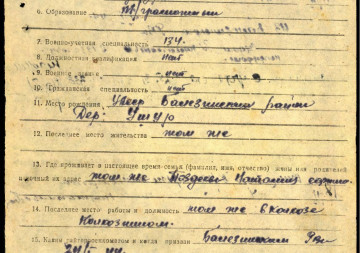 6. Образование М/грамотный
7. Военно-учетная специальность 134.
8. Должностная квалификация нет
9. Военное звание - нет
10. Гражданская специальность нет
11. Место рождения Удсср Балезинский район
Дер: Ушур
12. Последнее место жительства там же
13. Где проживает в настоящее время семья (фамилия, имя, отчество) жены или родителей
и точный их адрес там же Поздеева
14. Последнее место работы и должность там же в колхозе
Колхозником.
15. Каким райвоенкоматом и когда призван Балезинским Рвк